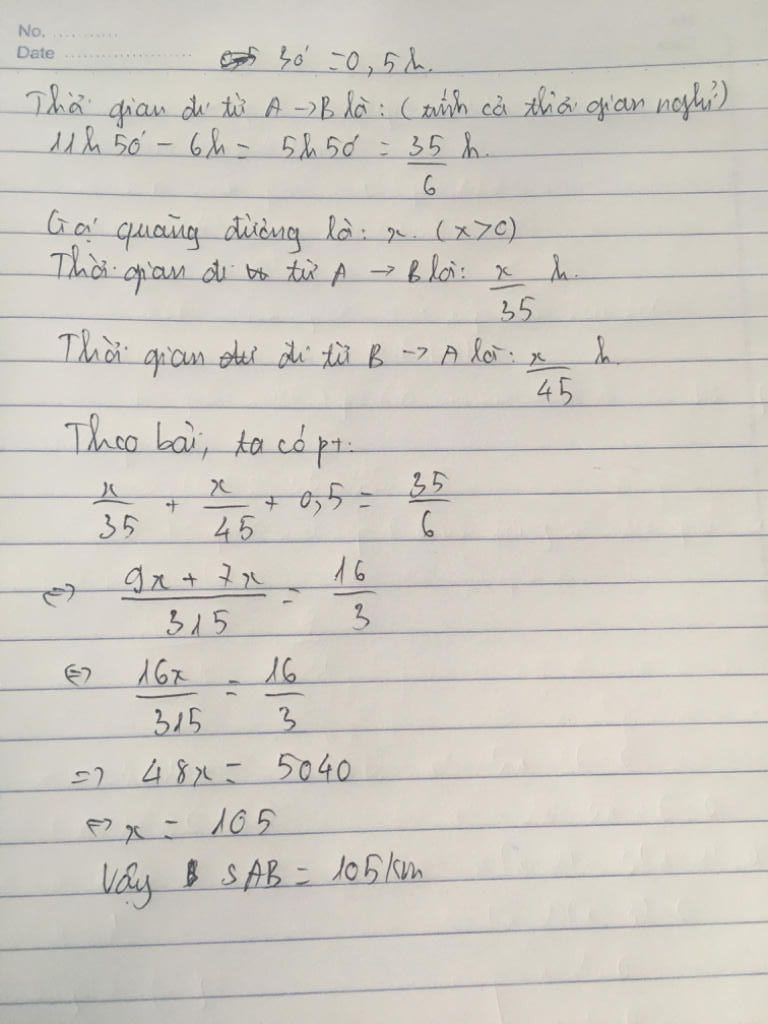 No. ...........
Date ........................
30' = 0,5h.
Thời gian đi từ A → B là: (tính cả thời gian nghỉ)
11h 50' - 6h = 5h 50' = 35/6 h.
Gọi quãng đường là: x. (x>0)
Thời gian đi từ A → B là: x/35 h.
Thời gian đi từ B → A là: x/45 h.
Theo bài, ta có pt:
x/35 + x/45 + 0,5 = 35/6
⇔ (9x + 7x)/315 = 16/3
⇔ 16x/315 = 16/3
⇒ 48x = 5040
⇔ x = 105
Vậy SAB = 105km